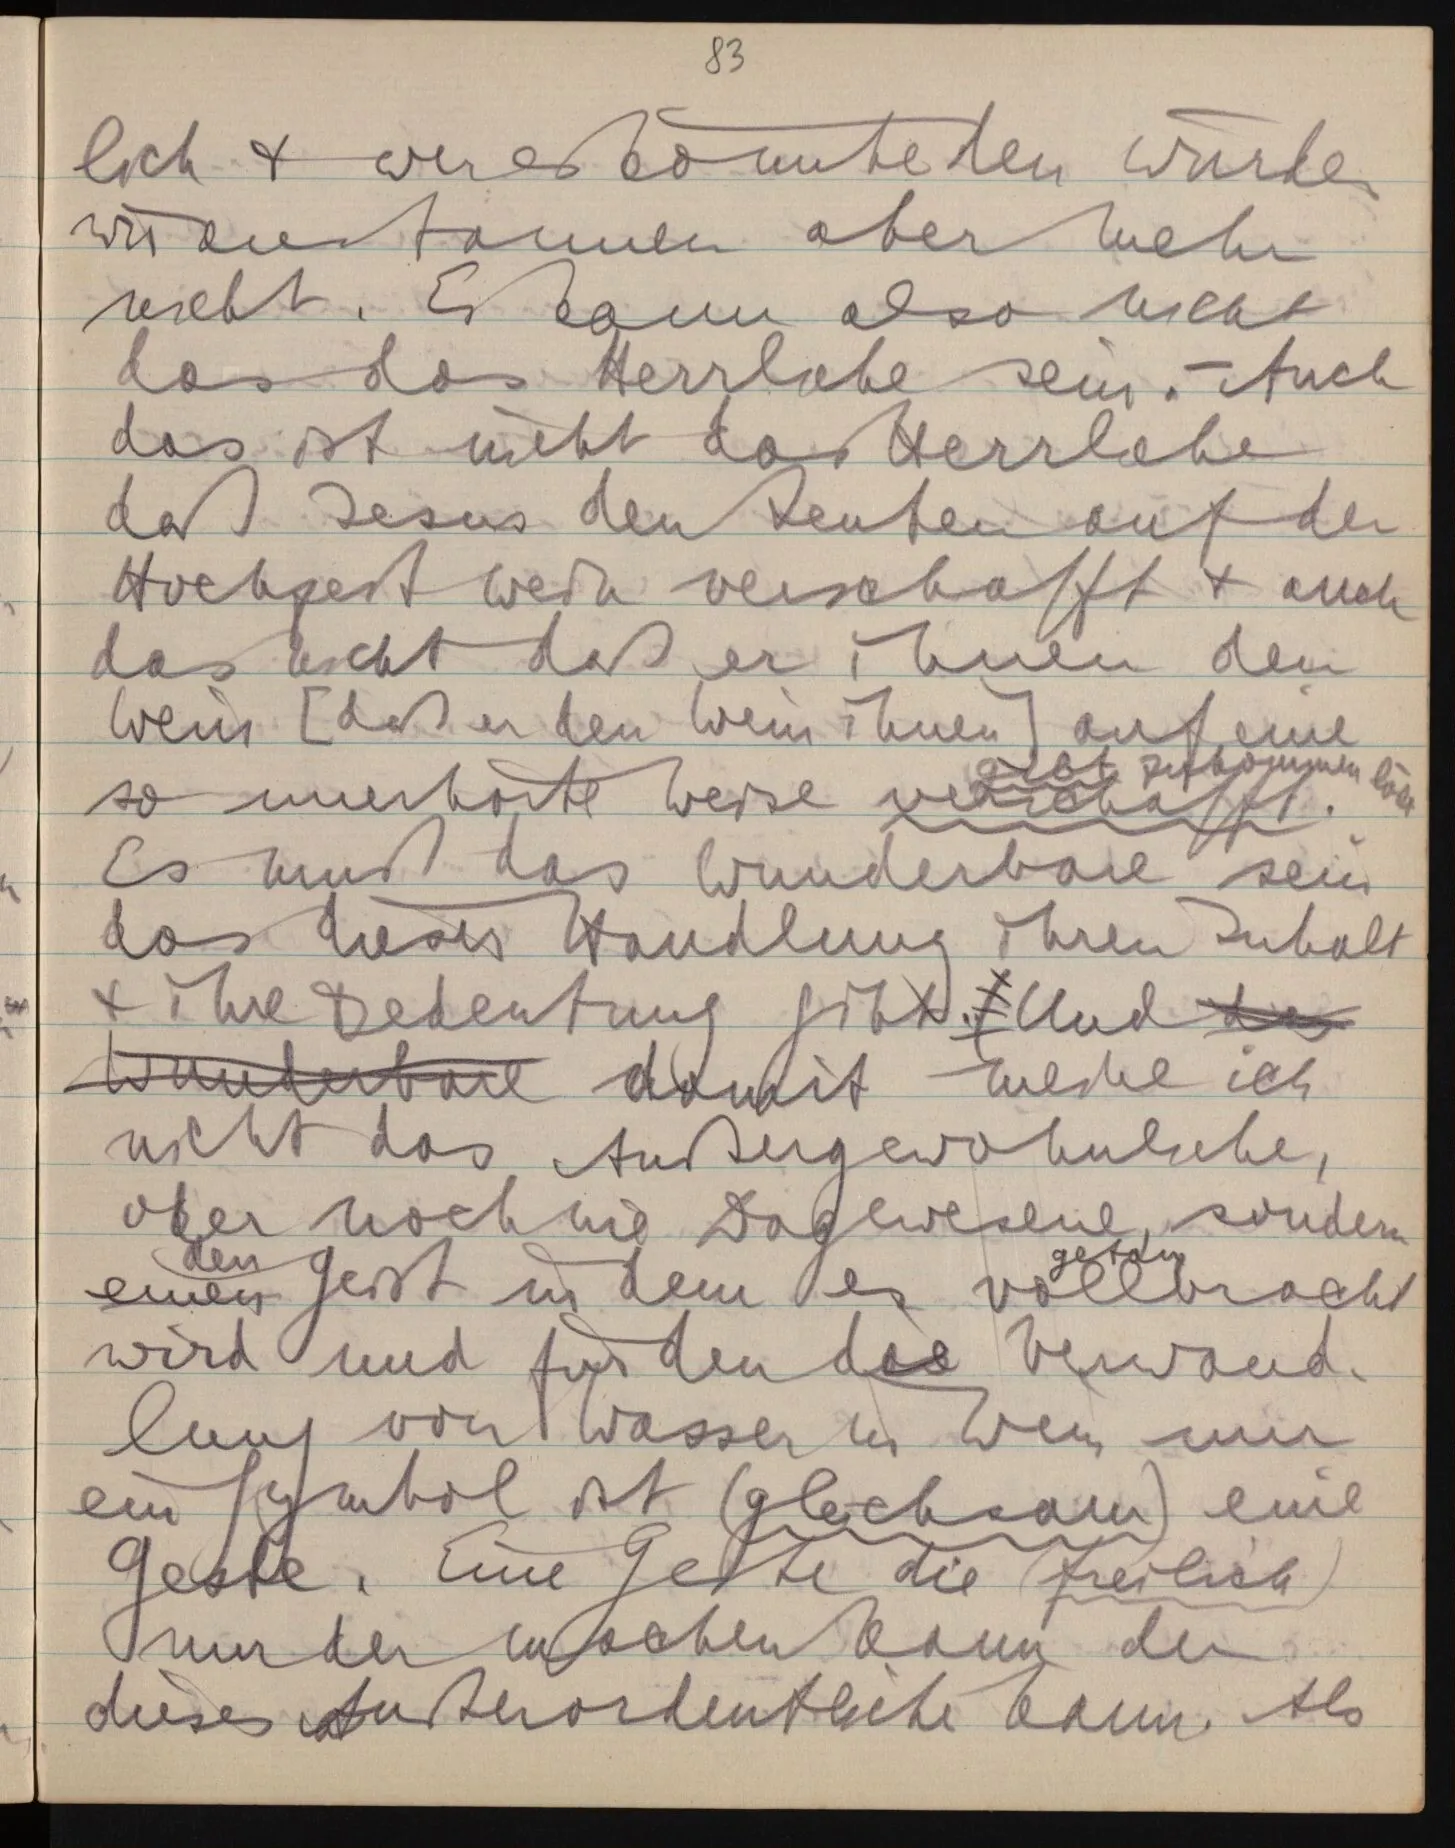 83
lich & wer es könnte den würden
wir anstaunen aber mehr
nicht. Es kann also nicht
das das Herrliche sein. – Auch
das ist nicht das Herrliche
daß Jesus den Leuten auf der
Hochzeit Wein verschafft & auch
das nicht daß er ihnen den
Wein [daß er den Wein ihnen] auf eine
gibt zukommen läßt
so unerhörte Weise verschafft.
Es muß das Wunderbare sein
das dieser Handlung ihren Inhalt
& ihre Bedeutung gibt. Und das
Wunderbare damit meine ich
nicht das Außergewöhnliche,
oder noch nie Dagewesene, sondern
den getan
einen Geist in dem es vollbracht
wird und für den die Verwand-
lung von Wasser in Wein nur
ein Symbol ist (gleichsam) eine
Geste. Eine Geste die (freilich)
nur der machen kann der
dieses Außerordentliche kann. Als